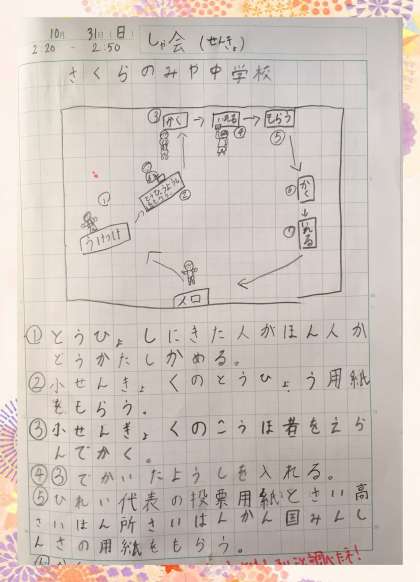 10月 31日(日)
2:20 - 2:50
しゃ会 (せんきょ)
さくらのみや中学校
③ かく
いれる ④
もらう ⑤
①
うけつけ
②
⑥ かく
⑦ 入れる
入口
①とうひょうしにきた人がほん人か
どうかたしかめる。
②小せんきょくのとうひょう用紙
をもらう。
③小せんきょくのこうほ者をえら
んでかく。
④③でかいたようしを入れる。
⑤ひれい代表の投票用紙とさい高
さいはん所さいはんかん国みんし
んさの用紙をもらう。
調べたネ!